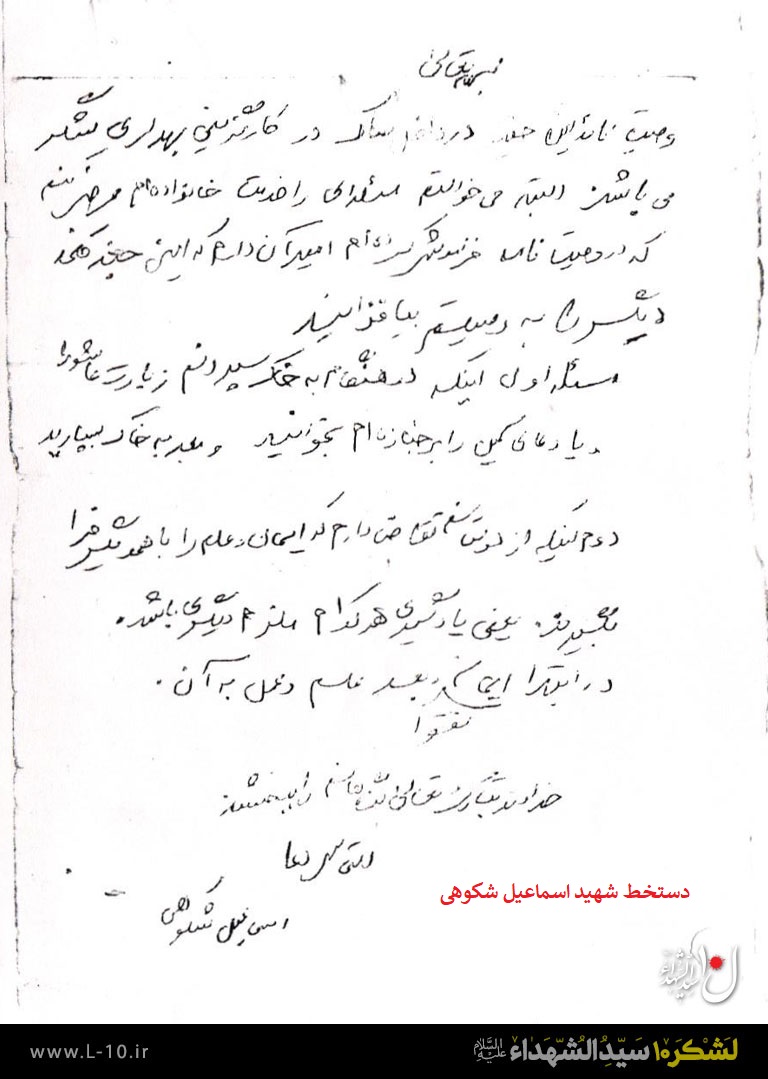 بسمه تعالی
وصیت نامه این حقیر در داخل ساک در کارگزینی بهداری لشگر
می باشد البته می خواستم مسئله‌ای را خدمت خانواده‌ام عرض کنم
که در وصیت نامه فراموش کرده‌ام امید آن دارم که این چند نکته
دیگر را به وصیتم بیافزائید
مسئله اول اینکه در هنگام به خاک سپردنم زیارت عاشورا
و یا دعای کمیل را بر جنازه‌ام بخوانید و بعد به خاک بسپارید
دوم اینکه از دوستانم تقاضا دارم که ایمان و علم را با همدیگر فرا
بگیرند. یعنی یادگیری هر کدام ملزم دیگری باشد.
در ابتدا ایمان بعد علم و عمل به آن.
تقوا
خداوند تبارک و تعالی را ببخشد
التماس دعا
اسماعیل شکوهی
دستخط شهید اسماعیل شکوهی
سیدالشهداء
لشکر ۱۰ سَیِّدُالشُّهَداء عَلَیْهِ السَّلام
www.L-10.ir